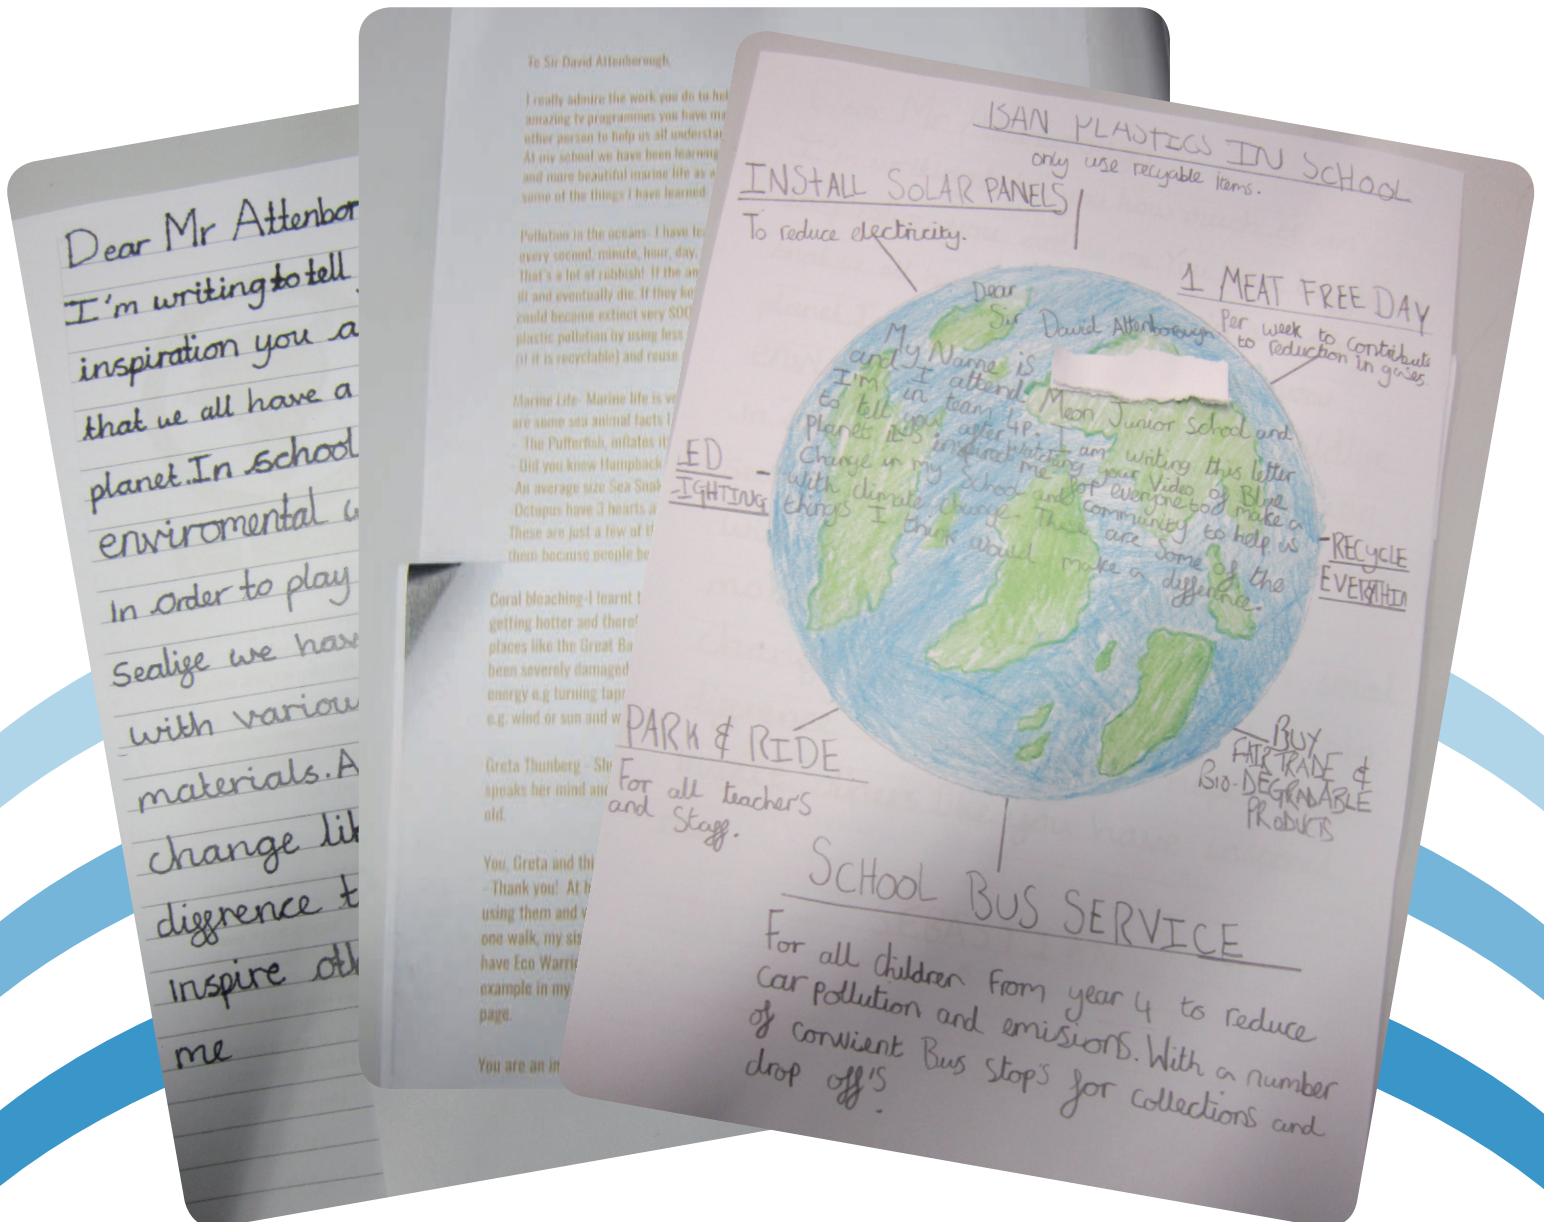 Dear Mr Attenbor
I'm writing to tell
inspiration you a
that we all have a
planet. In school
enviromental
In order to play
Sealige we hav
with variou
materials. A
change lik
diggrence t
Inspire oth
me
To Sir David Attenborough,
I really admire the work you do to hel
amazing tv programmes you have ma
other person to help us all understan
At my school we have been learning
and more beautiful marine life as w
some of the things I have learned
Pollution in the oceans- I have le
every second, minute, hour, day,
That's a lot of rubbish! If the an
ill and eventually die. If they ke
could become extinct very SOO
plastic pollution by using less
(if it is recyclable) and reuse
Marine Life- Marine life is ve
are some sea animal facts I
- The Pufferfish, inflates it
- Did you know Humpback
- An average size Sea Snak
- Octopus have 3 hearts a
These are just a few of th
them because people be
Coral bleaching-I learnt t
getting hotter and theref
places like the Great Ba
been severely damaged
energy e.g turning taps
e.g. wind or sun and w
Greta Thunberg - She
speaks her mind and
old.
You, Greta and thi
- Thank you! At h
using them and w
one walk, my sis
have Eco Warri
example in my
page.
You are an in
BAN PLASTICS IN SCHOOL
only use recyable items.
INSTALL SOLAR PANELS
To reduce electricity.
1 MEAT FREE DAY
Per week to contribute
to reduction in gases.
Dear
Sir David Attenborough
My Name is
and I attend Meon Junior School and
I'm in team 4P. I am writing this letter
to tell you after watching your Video of Blue
Planet it's inspired me for everyone to make a
Change in my School and community to help us
with climate change. These are some of the
things I think would make a difference.
ED
IGHTING
RECYCLE
EVERYTHIN
PARK & RIDE
For all teacher's
and Staff.
BUY
FAIRTRADE &
BIO-DEGRADABLE
PRODUCTS
SCHOOL BUS SERVICE
For all children From year 4 to reduce
car pollution and emisions. With a number
of convient Bus stop's for collections and
drop off's.